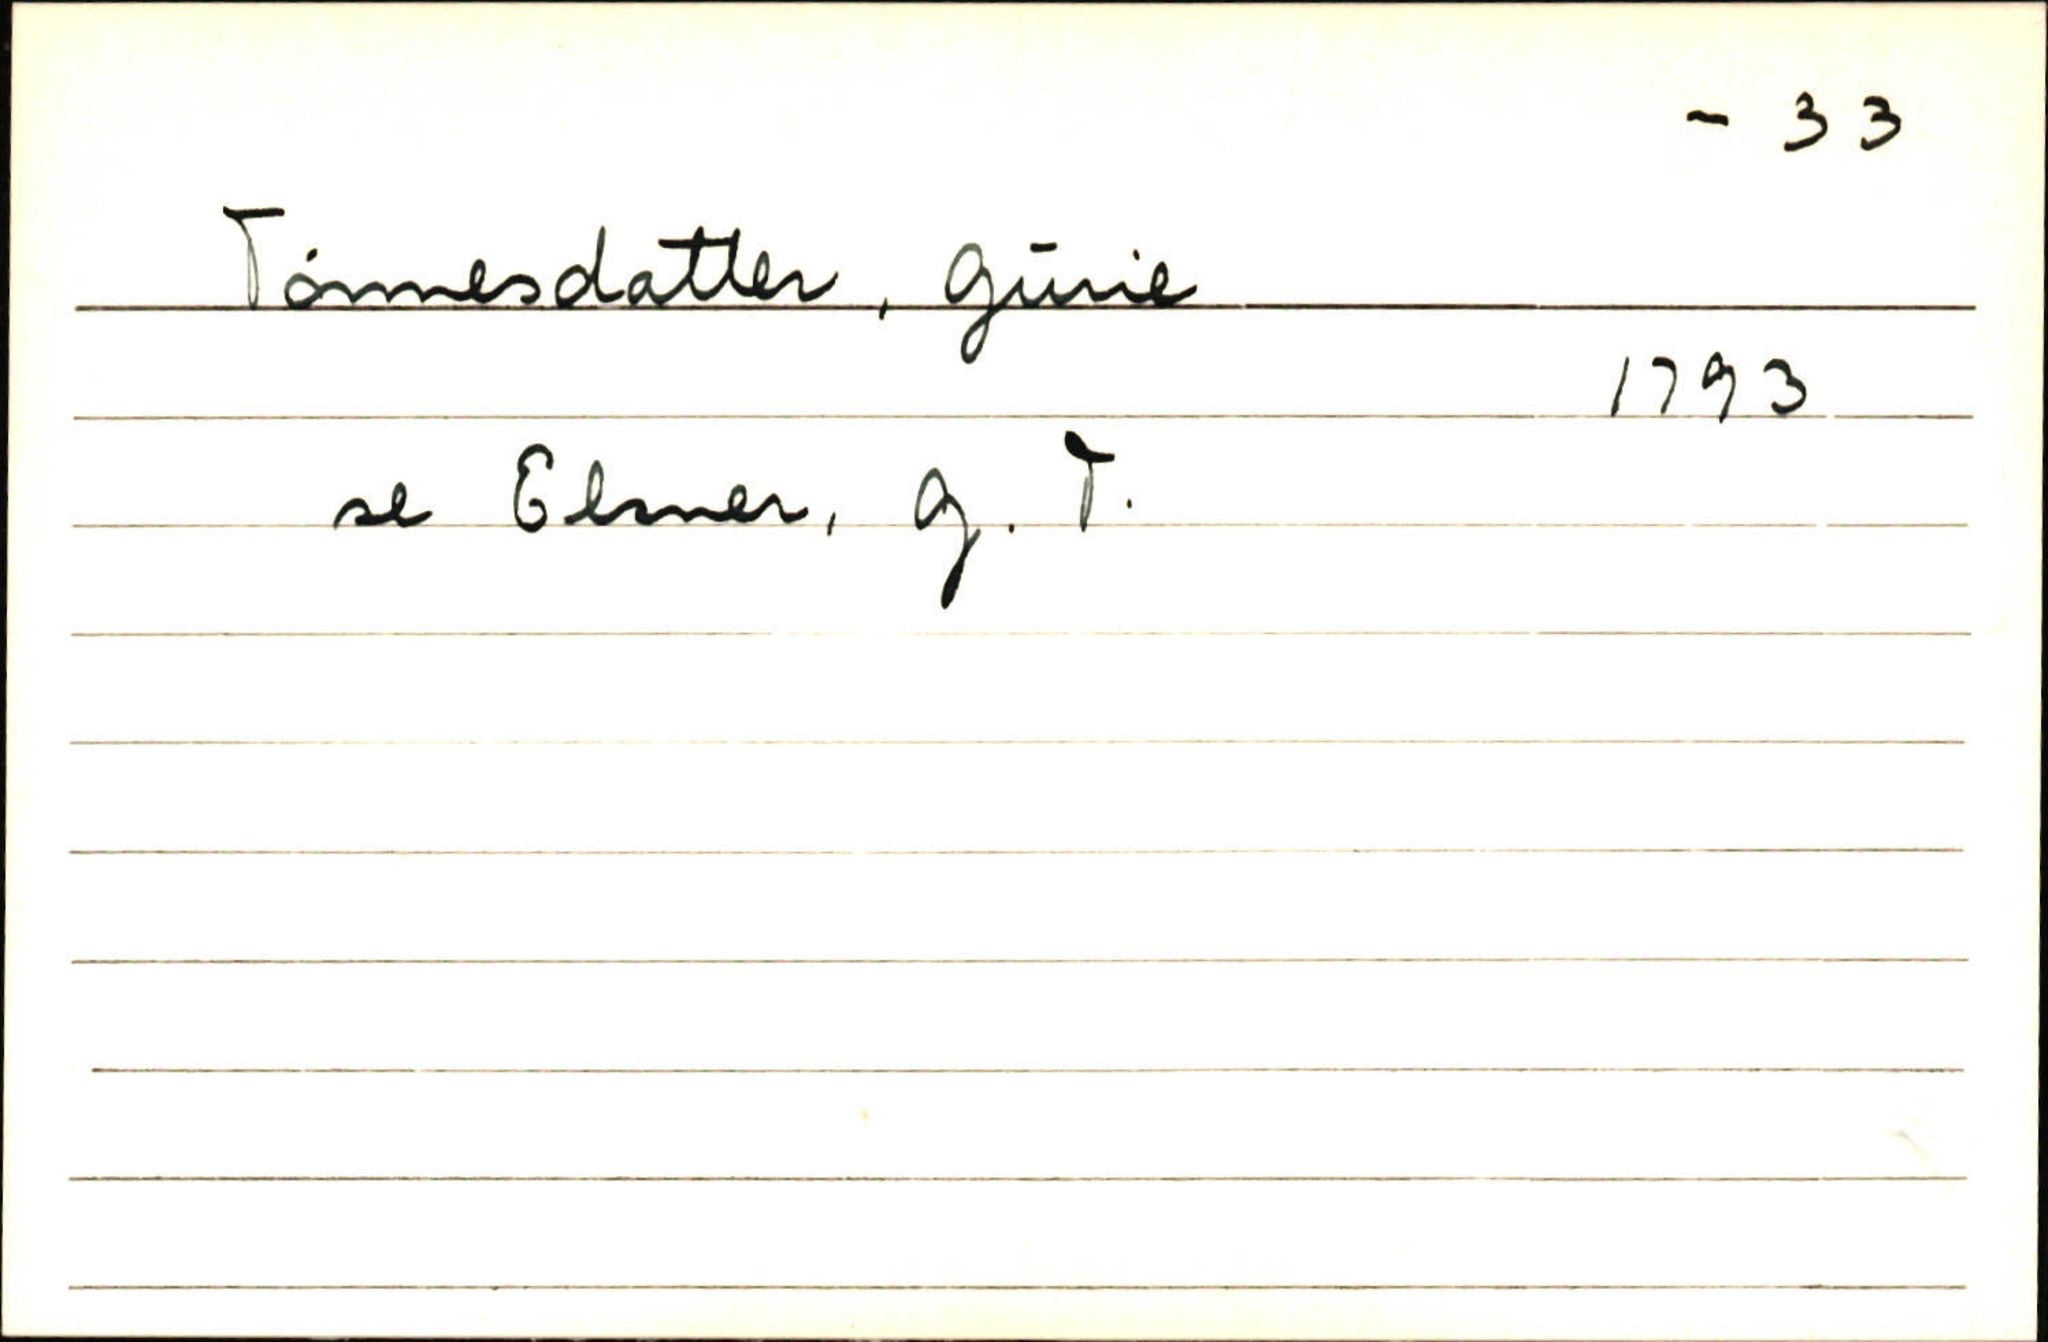 - 33
Tønnesdatter, Gurie
1793
se Elsner, G. T.